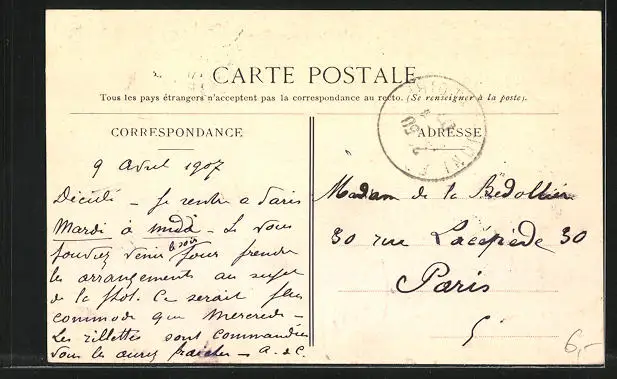 CARTE POSTALE
Tous les pays étrangers n'acceptent pas la correspondance au recto. (Se renseigner à la poste).
CORRESPONDANCE
9 Avril 1907
Décidé - Je rentre a Paris
Mardi à midi - Si vous
pouvez venir le soir pour prendre
les arrangements au sujet
de la phot. Ce serait plus
commode que Mercredi -
Les rillettes sont commandées
Vous les aurez fraiches - A. de C.
ADRESSE
Madame de la Bédollière
30 rue Lacépède 30
Paris
6,-